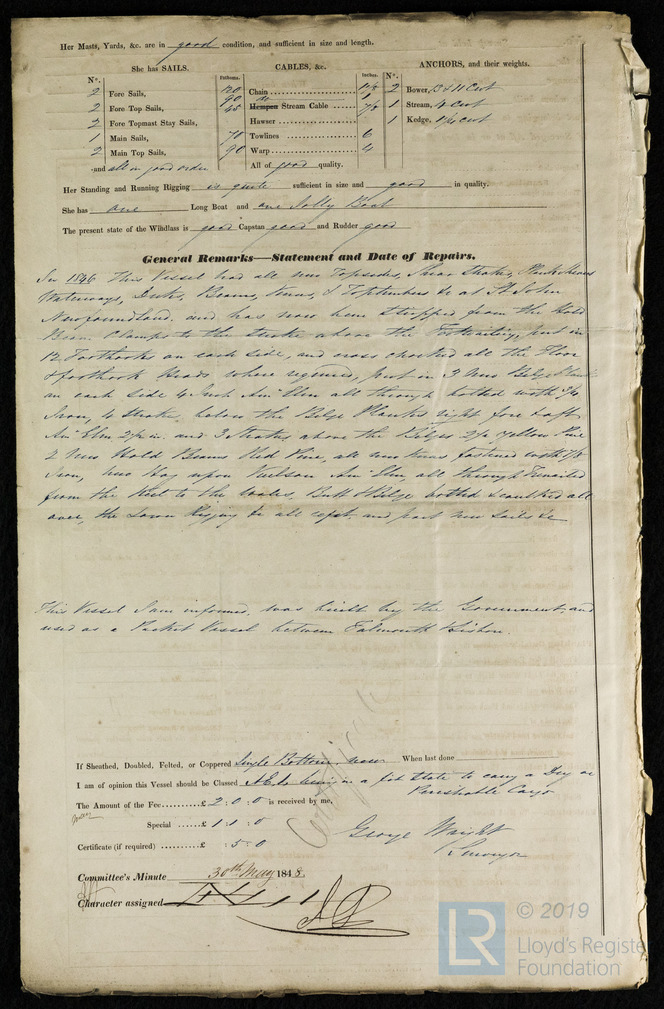 Her Masts, Yards, &c. are in good condition, and sufficient in size and length.
She has SAILS.
CABLES, &c.
ANCHORS, and their weights.
N°.
Fathoms.
Inches.
N°.
2 Fore Sails,
2 Fore Top Sails,
2 Fore Topmast Stay Sails,
1 Main Sails,
2 Main Top Sails,
and all in good order
Chain 120
Hempen Stream Cable
Hawser
Towlines 70 6
Warp 90 4
All of good quality.
2 Bower,
1 Stream, 4 Cwt
1 Kedge,
Her Standing and Running Rigging is quite sufficient in size and good in quality.
She has one Long Boat and one Jolly Boat
The present state of the Windlass is good Capstan good and Rudder good
General Remarks—Statement and Date of Repairs.
In 1846 This Vessel had all new Topsides, Shear Strakes, Plank Sheers
Waterways, Decks, Beams, Knees, & Toptimbers &c at St John
Newfoundland. and has now been stripped from the Hold
Beam Clamps to the strake above the put in
12 Foothooks on each side, and cross chocked all the Floor
& foothook Heads where required, put in 3 New Bilge Planks
on each side 4 Inch Amn Elm all through bolted with 3/4
Iron, 4 Strakes below the Bilge Planks right fore & aft
Amn Elm 2½ in. and 3 Strakes above the Bilges 2½ Yellow Pine
2 New Hold Beams Red Pine, all new knees fastened with 7/8
Iron, new upon Keelson Amn Elm, all through Trenailed
from the Keel to the Wales, Butt & Bilge bolted & caulked all
over, the Lower Rigging &c all and part new Sails &c
This Vessel I am informed, was built by the Government, and
used as a Packet Vessel between Falmouth Lisbon.
Certificate
If Sheathed, Doubled, Felted, or Coppered Single Bottom, new When last done
I am of opinion this Vessel should be Classed Æ 1. being in a fit State to carry a Dry or
Perishable Cargo
The Amount of the Fee £ 2 : 0 : 0 is received by me,
Special £ 1 : 1 : 0
Certificate (if required) £ : 5 : 0
George Wright
Surveyor
Committee's Minute 30th May 1848
Character assigned
LR
© 2019
Lloyd's Register
Foundation